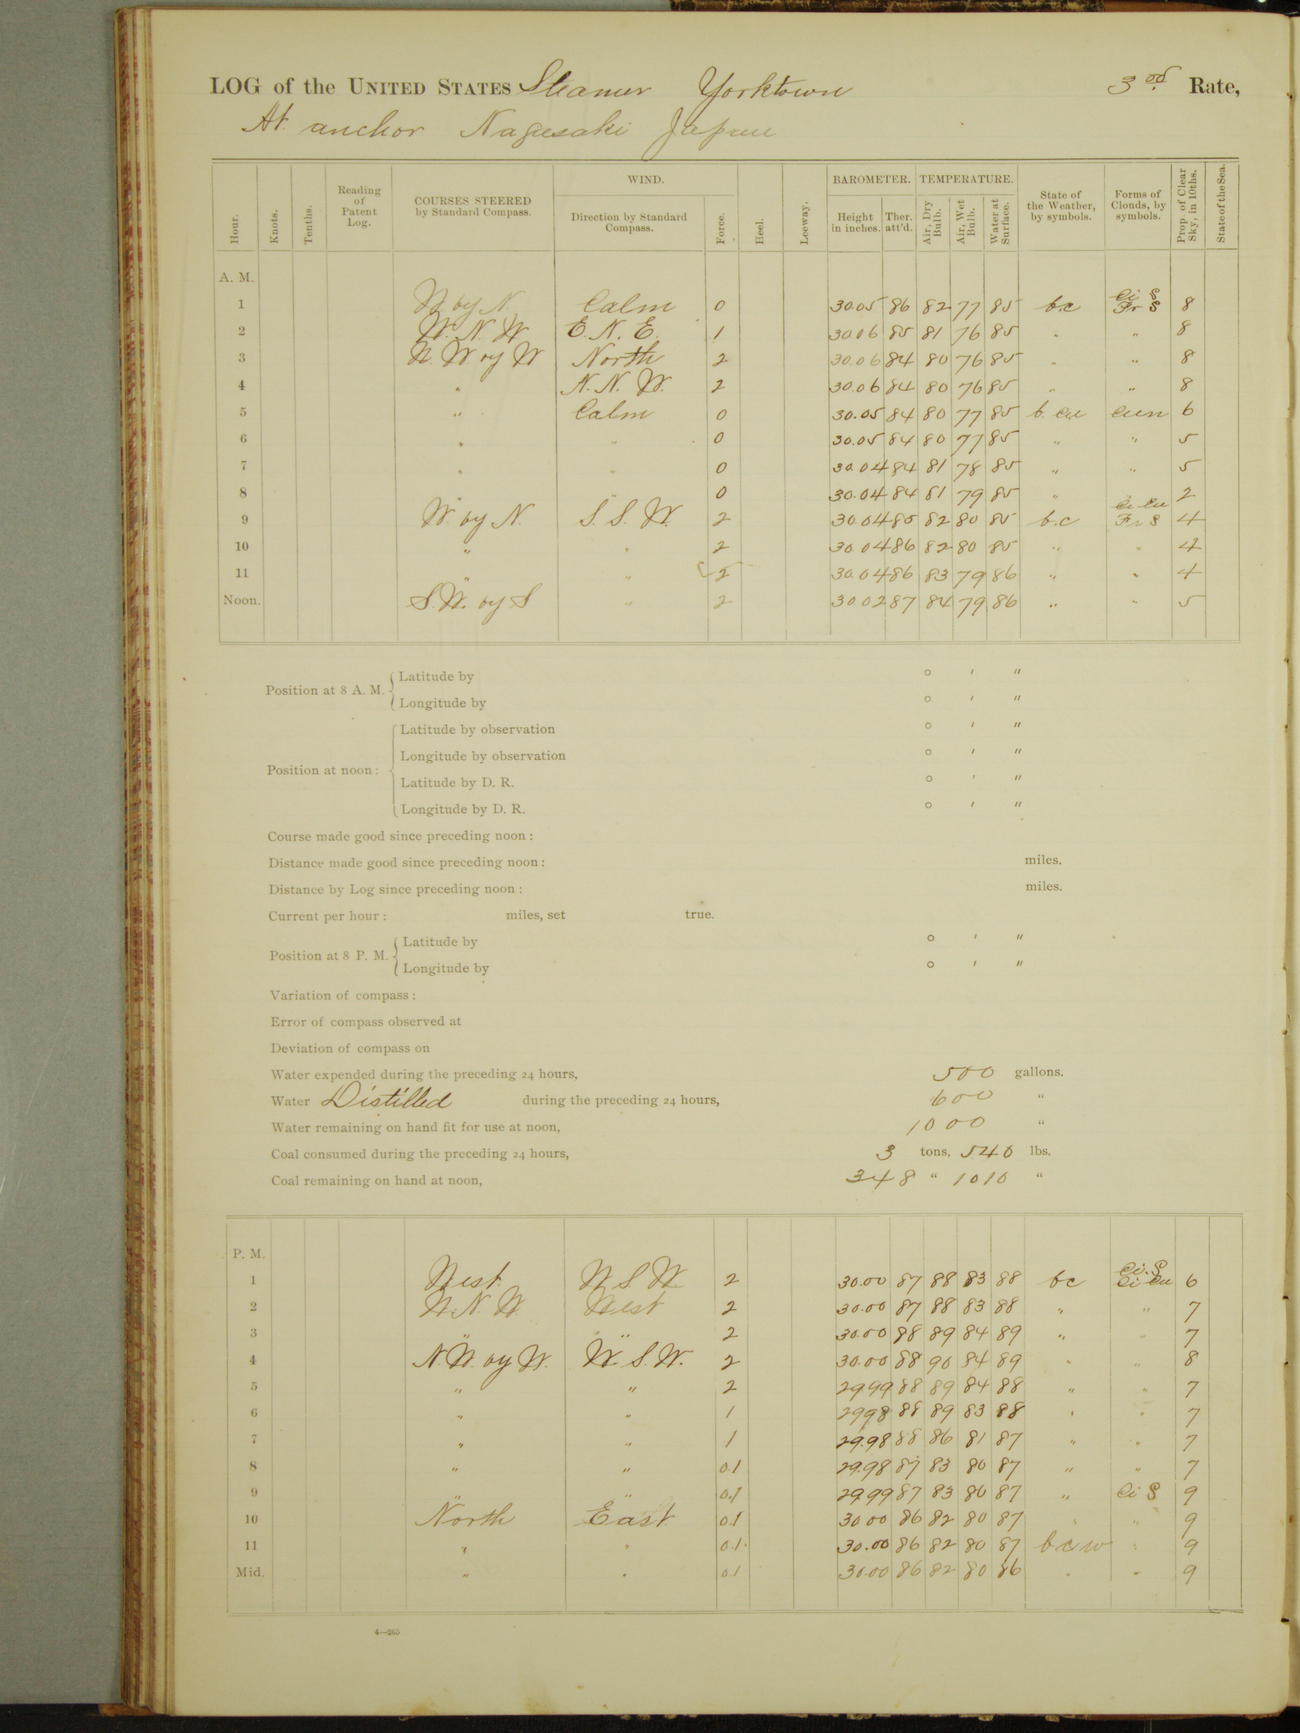 LOG of the UNITED STATES Steamer Yorktown 3rd Rate,
At anchor Nagasaki Japan
Hour. Knots. Tenths. Reading of Patent Log. COURSES STEERED by Standard Compass. WIND. Direction by Standard Compass. Force. Heel. Leeway. BAROMETER. Height in inches. Ther. att'd. TEMPERATURE. Air, Dry Bulb. Air, Wet Bulb. Water at Surface. State of the Weather, by symbols. Forms of Clouds, by symbols. Prop. of Clear Sky, in 10ths. State of the Sea.
A. M.
1 W by N. Calm 0 30.05 86 82 77 85 b.c Ci S Fr S 8
2 W. N. W E. N. E. 1 30.06 85 81 76 85 " " 8
3 N. W. by W North 2 30.06 84 80 76 85 " " 8
4 " N. N. W. 2 30.06 84 80 76 85 " " 8
5 " Calm 0 30.05 84 80 77 85 b. cu cum 6
6 " " 0 30.05 84 80 77 85 " " 5
7 " " 0 30.04 84 81 78 85 " " 5
8 " " 0 30.04 84 81 79 85 " 2
9 W. by N. S. S. W. 2 30.04 85 82 80 85 b.c Ci Cu Fr S 4
10 " " 2 30.04 86 82 80 85 " " 4
11 " " 2 30.04 86 83 79 86 " " 4
Noon. S. W. by S " 2 30.02 87 84 79 86 " " 5
Position at 8 A. M. Latitude by ° ′ ″
Longitude by ° ′ ″
Position at noon: Latitude by observation ° ′ ″
Longitude by observation ° ′ ″
Latitude by D. R. ° ′ ″
Longitude by D. R. ° ′ ″
Course made good since preceding noon:
Distance made good since preceding noon: miles.
Distance by Log since preceding noon: miles.
Current per hour: miles, set true.
Position at 8 P. M. Latitude by ° ′ ″
Longitude by ° ′ ″
Variation of compass:
Error of compass observed at
Deviation of compass on
Water expended during the preceding 24 hours, 500 gallons.
Water Distilled during the preceding 24 hours, 600 "
Water remaining on hand fit for use at noon, 1000 "
Coal consumed during the preceding 24 hours, 3 tons, 540 lbs.
Coal remaining on hand at noon, 348 " 1010 "
P. M.
1 West. W S W 2 30.00 87 88 83 88 bc Ci. S Ci Cu 6
2 W. N. W West 2 30.00 87 88 83 88 " " 7
3 " " 2 30.00 88 89 84 89 " " 7
4 N. W. by W. W. S. W. 2 30.00 88 90 84 89 " " 8
5 " " 2 29.99 88 89 84 88 " " 7
6 " " 1 29.98 88 89 83 88 " " 7
7 " " 1 29.98 88 86 81 87 " " 7
8 " " 0.1 29.98 87 83 80 87 " " 7
9 " " 0.1 29.99 87 83 80 87 " Ci S 9
10 North East 0.1 30.00 86 82 80 87 " " 9
11 " " 0.1 30.00 86 82 80 87 b c w " 9
Mid. " " 0.1 30.00 86 82 80 86 " " 9
4—265